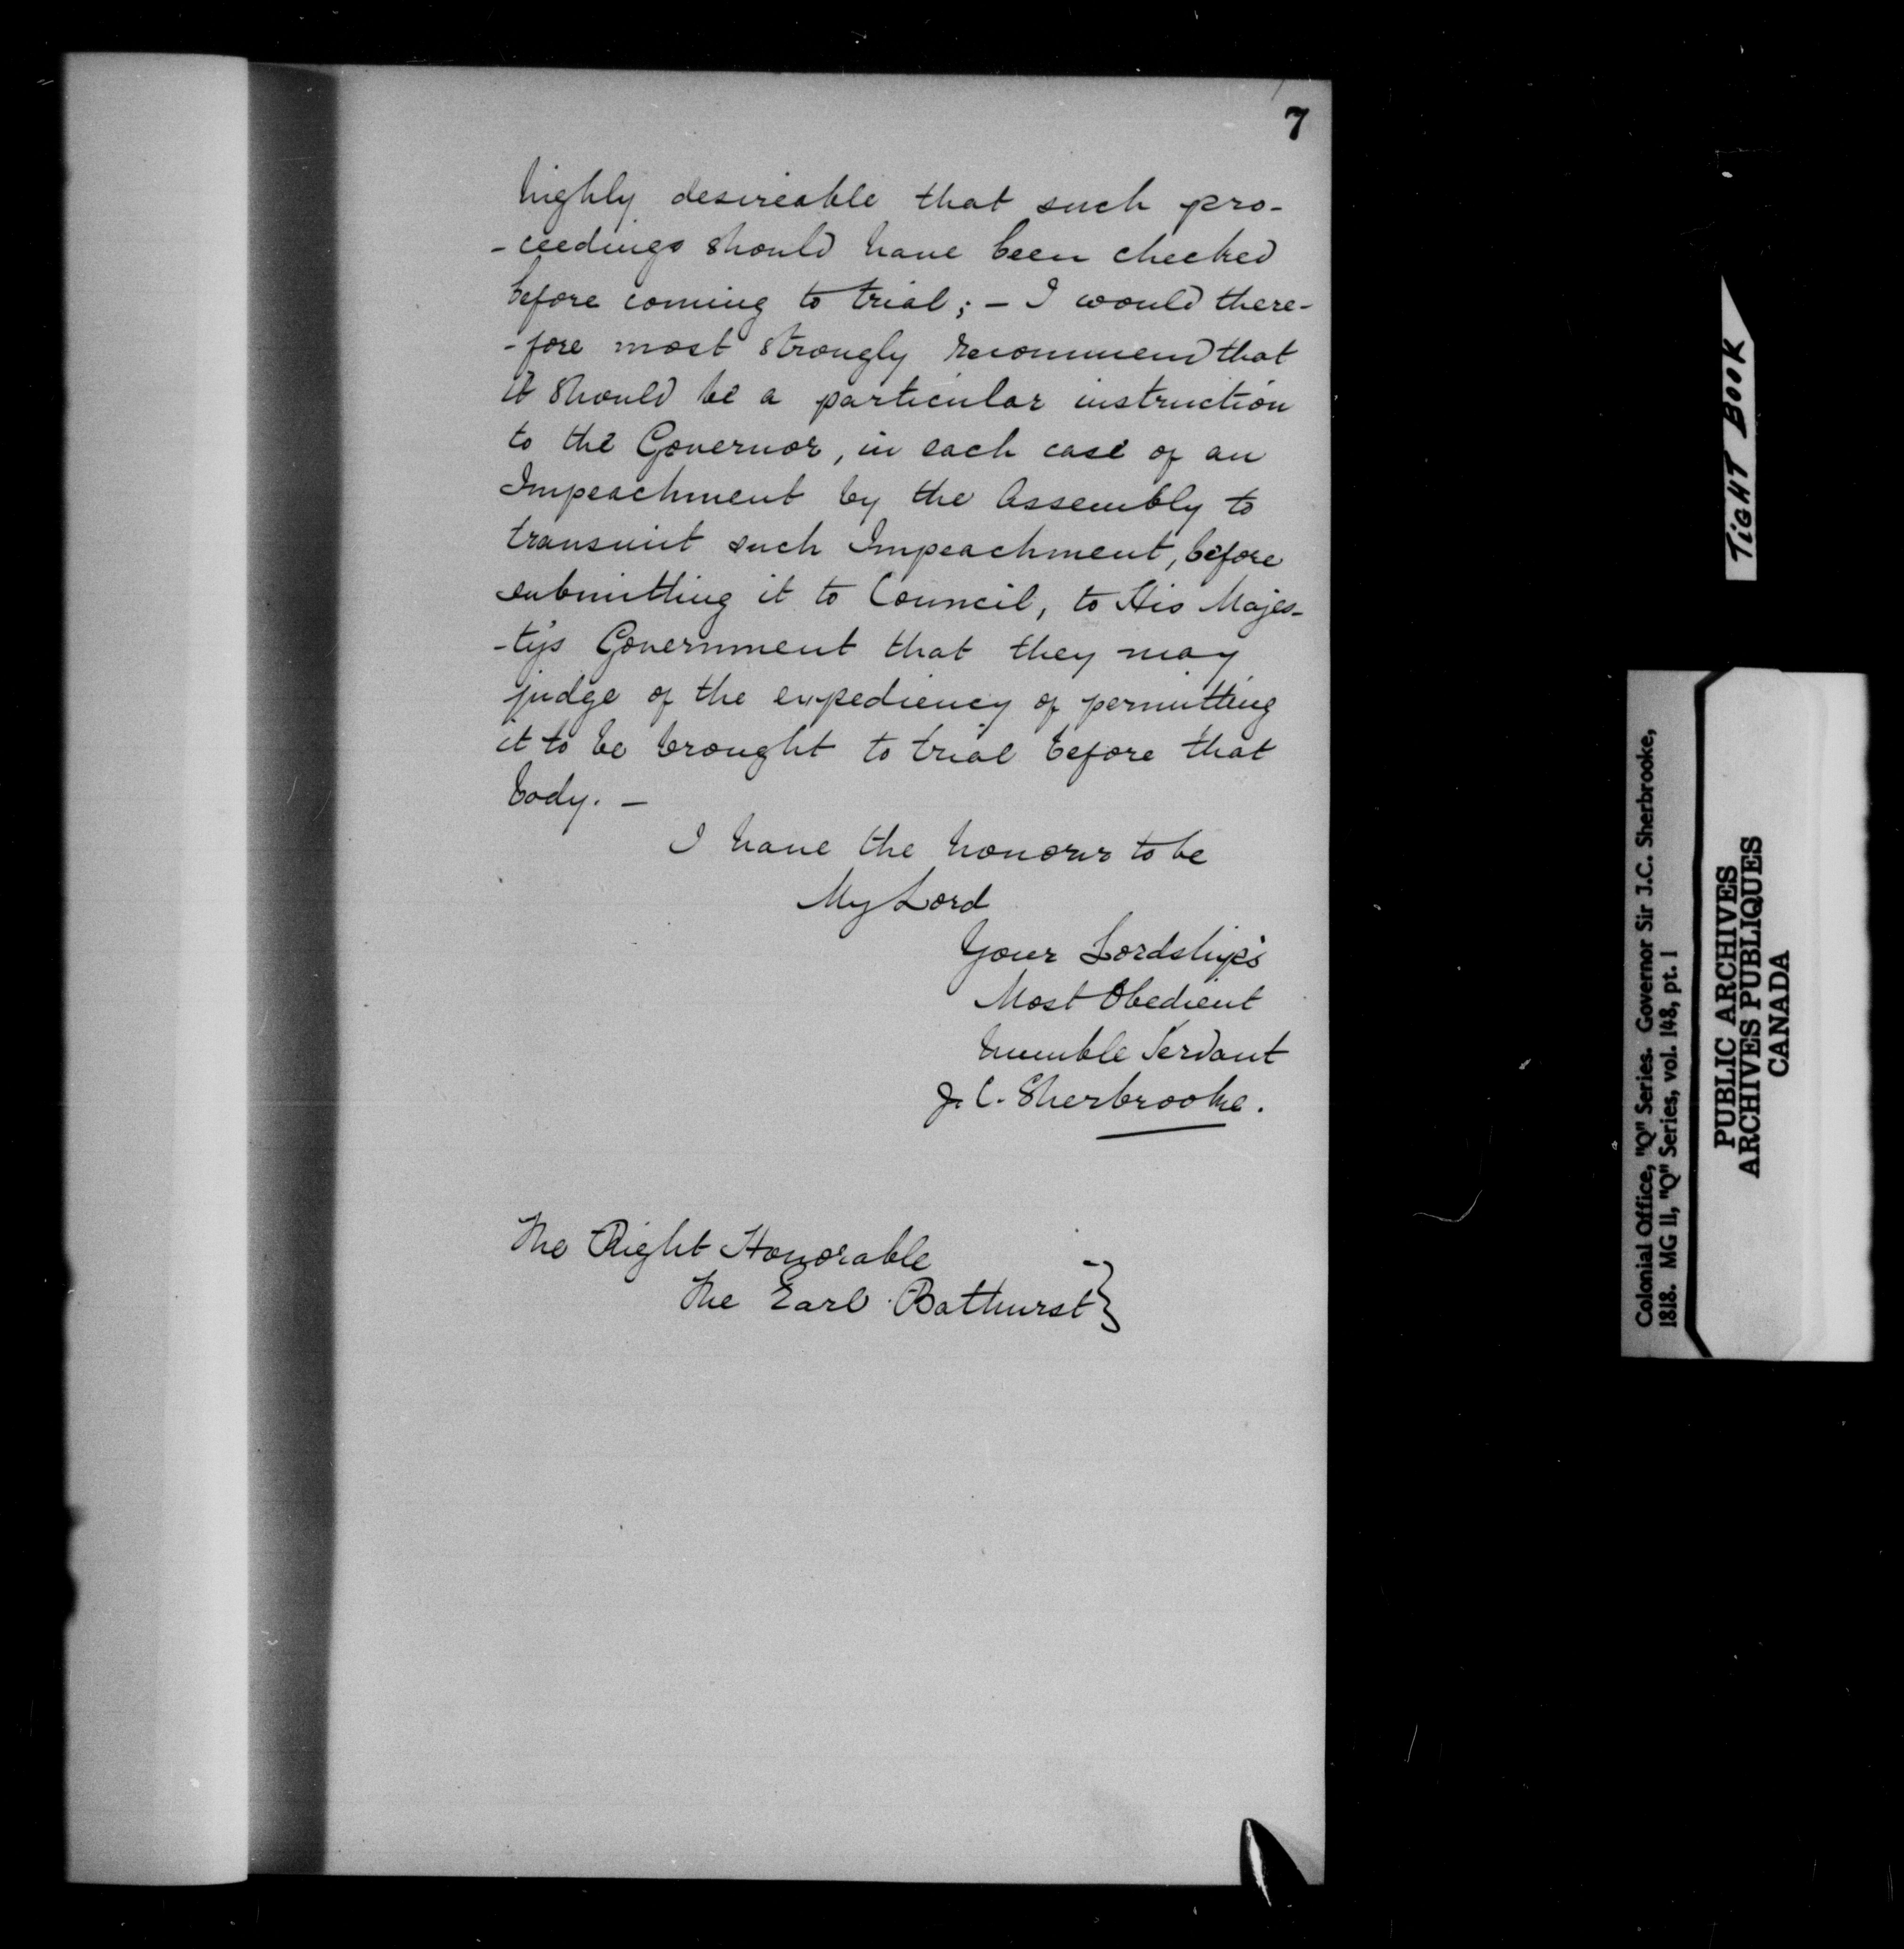 7
highly desireable that such pro-
-ceedings should have been checked
before coming to trial; - I would there-
-fore most strongly recommend that
it should be a particular instruction
to the Governor, in each case of an
Impeachment by the Assembly to
transmit such Impeachment, before
submitting it to Council, to His Majes-
-ty's Government that they may
judge of the expediency of permitting
it to be brought to trial before that
body. -
I have the honour to be
My Lord
Your Lordship's
Most Obedient
humble Servant
J. C. Sherbrooke.
The Right Honorable
The Earl Bathurst}
TIGHT BOOK
Colonial Office, "Q" Series. Governor Sir J.C. Sherbrooke,
1818. MG 11, "Q" Series, vol. 148, pt. 1
PUBLIC ARCHIVES
ARCHIVES PUBLIQUES
CANADA